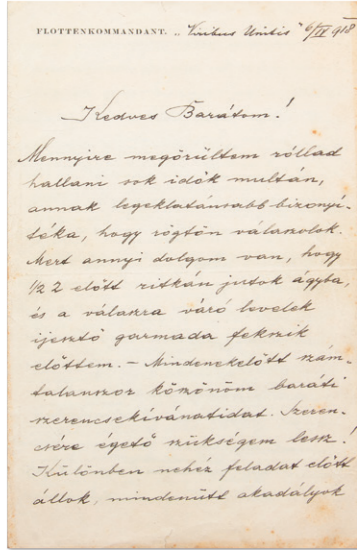 FLOTTENKOMMANDANT. „Viribus Unitis" 6/IV 918
Kedves Barátom!
Mennyire megörültem róllad
hallani sok idők multán,
annak legeklatánsabb bizonyi-
téka, hogy rögtön válaszolok.
Mert annyi dolgom van, hogy
1/2 2 előtt ritkán jutok ágyba,
és a válaszra váró levelek
ijesztő garmada fekszik
előttem. – Mindenekelőtt szám-
talanszor köszönöm baráti
szerencsekívánatidat. Szeren-
csére égető szükségem lesz!
Különben nehéz feladat előtt
állok, mindenütt akadályok